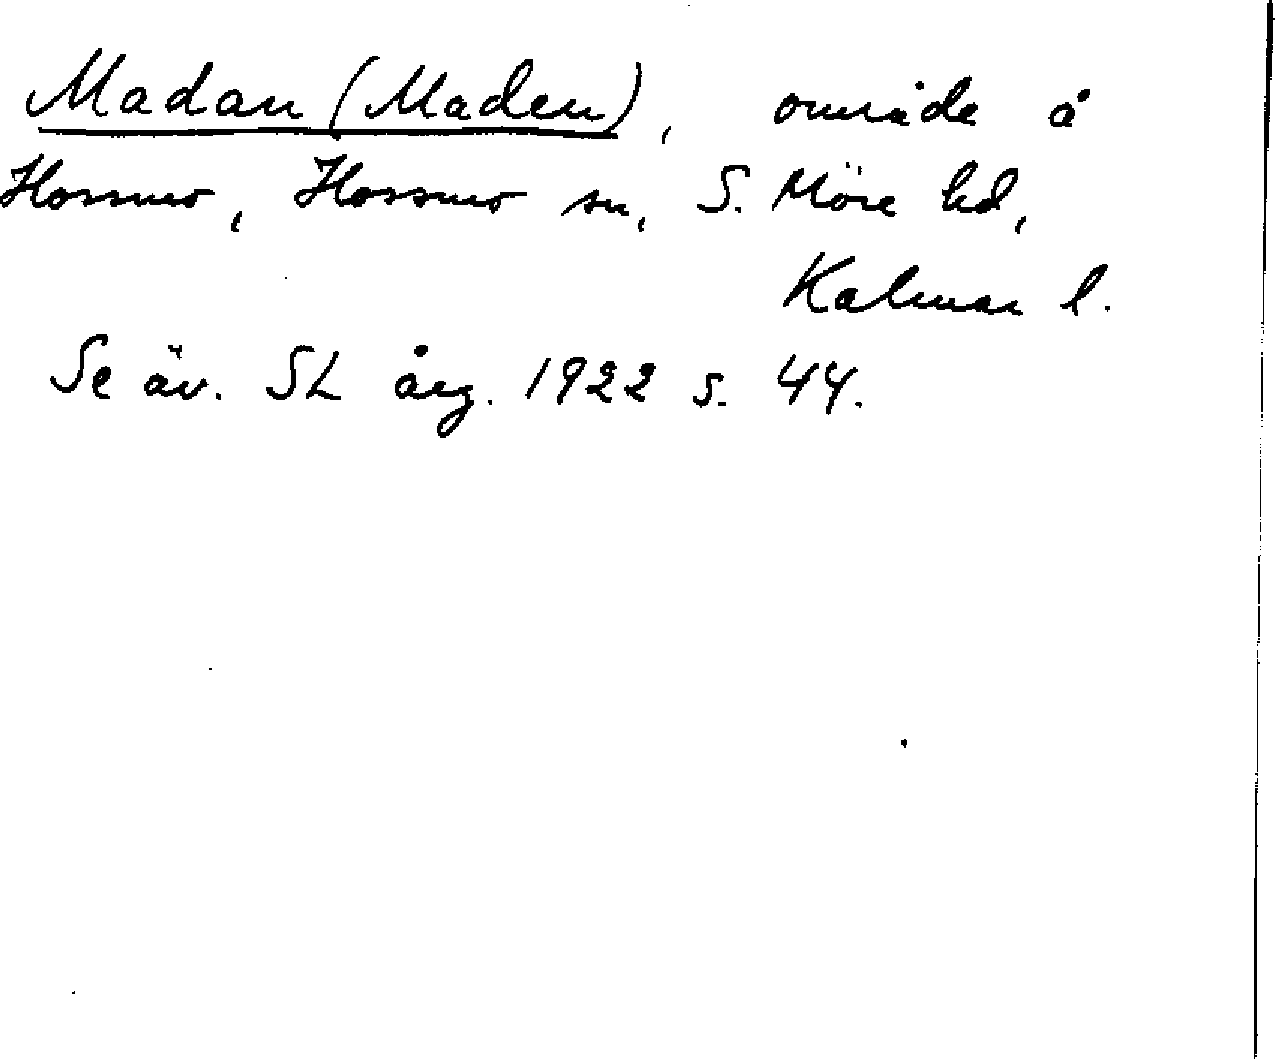 Madan (Maden), område å
Hossmo, Hossmo sn, S. Möre hd,
Kalmar l.
Se äv. SL årg. 1922 s. 44.